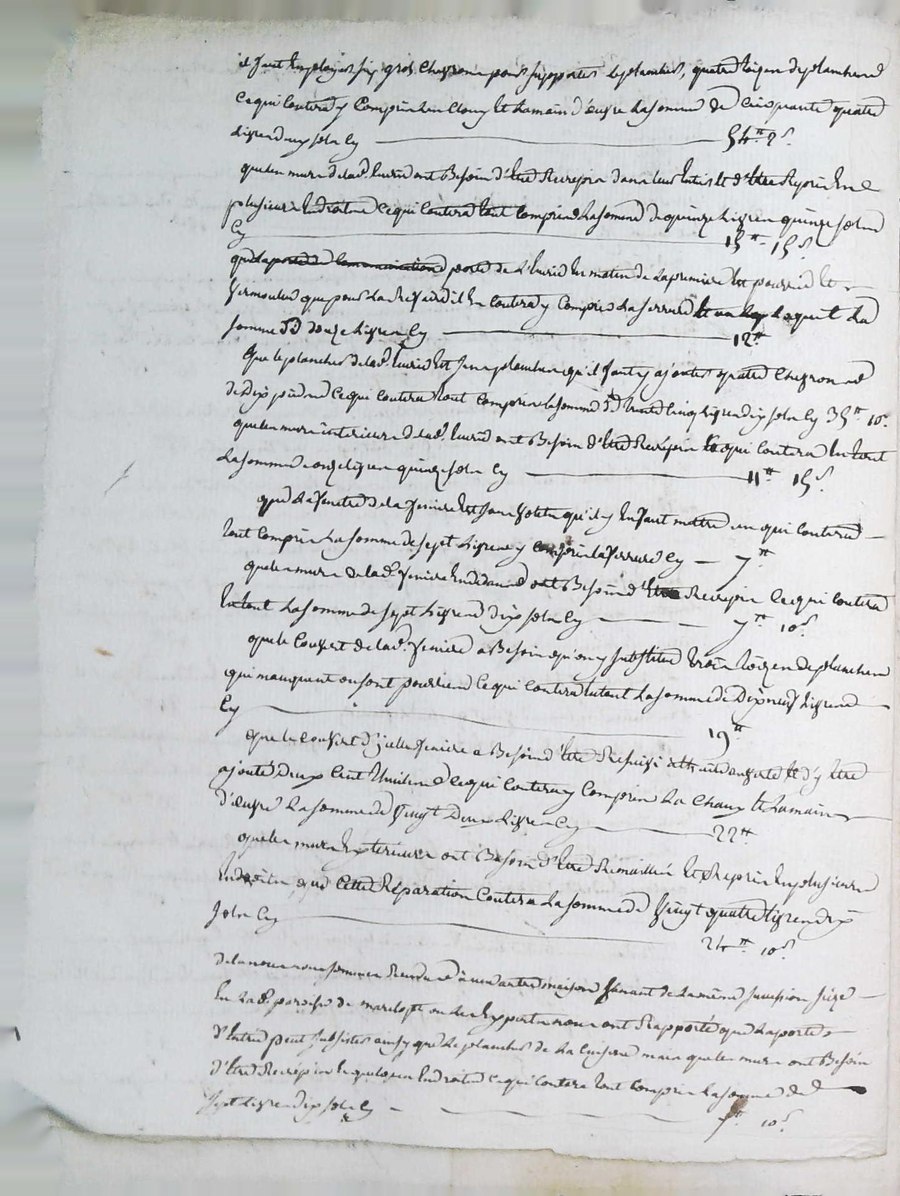 il faut employer six gros chevrons pour supporter le plancher, quatre toizes de planches
ce qui coutera y compris les clous et la main d'euvre la somme de cinquante quatre
livres deux sols cy 54# 2s.
que les murs de lad. écurie ont besoin d'être recrepis dans leur et d'être repris en
plusieurs endroits ce qui coutera tout compris la somme de quinze livres quinze sols
cy 15# 15s.
que la porte de l'écurie en de la première est pourrie et
vermoulue que pour la refaire il en coutera y compris la ferrure et le loquet la
somme de douze livres cy 12#
Que le plancher de lad. écurie est sans planches qu'il faut y ajouter quatre chevrons
de dix pieds ce qui coutera tout compris la somme de trente cinq livres dix sols cy 35# 10s.
que les murs interieurs de lad. écurie ont besoin d'être recrépis ce qui coutera en tout
la somme d'onze livres quinze sols cy 11# 15s.
que la fenetre de la feniere est sans volet qu'il y en faut mettre un qui coutera
tout compris la somme de sept livres y compris la ferrure cy 7#
que les murs de lad. feniere en dedans ont besoin d'être recrepis ce qui coutera
en tout la somme de sept livres dix sols cy 7# 10s.
que le couvert de lad. feniere a besoin qu'on y substitue trois toizes de planches
qui manquent ou sont pourries ce qui coutera en tout la somme de dix neuf livres
cy 19#
que le couvert d'icelle feniere a besoin d'être et d'y être
ajouté deux cent thuiles ce qui coutera y compris la chaux et la main
d'euvre la somme de vingt deux livres cy 22#
que les murs exterieurs ont besoin d'être remaillés et repris en plusieurs
endroits que cette réparation coutera la somme de vingt quatre livres dix
sols cy 24# 10s.
de la nous nous sommes rendus à une autre maison venant de la même succession size
en lad. paroisse de ou les experts nous ont rapporté que la porte
d'entrée peut subsister ainsy que le plancher de la cuisine mais que les murs ont besoin
d'être recrépis en quelques endroits ce qui coutera tout compris la somme de
sept livres dix sols cy 7# 10s.